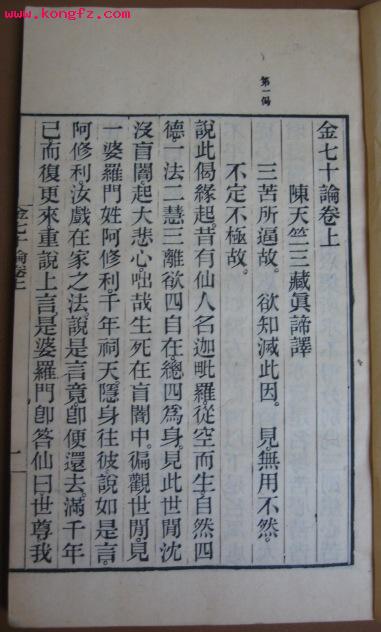 www.kongfz.com
第一偈
金七十論卷上
陳天竺三藏眞諦譯
三苦所逼故。欲知滅此因。見無用不然。
不定不極故。
說此偈緣起。昔有仙人名迦毗羅。從空而生。自然四
德。一法二慧三離欲四自在。總四爲身。見此世間沈
沒盲闇。起大悲心。咄哉生死在盲闇中。徧觀世間。見
一婆羅門姓阿修利。千年祠天。隱身往彼。說如是言。
阿修利。汝戲在家之法。說是言竟。卽便還去。滿千年
已而復更來。重說上言。是婆羅門卽答仙曰。世尊。我
金七十論卷上
一